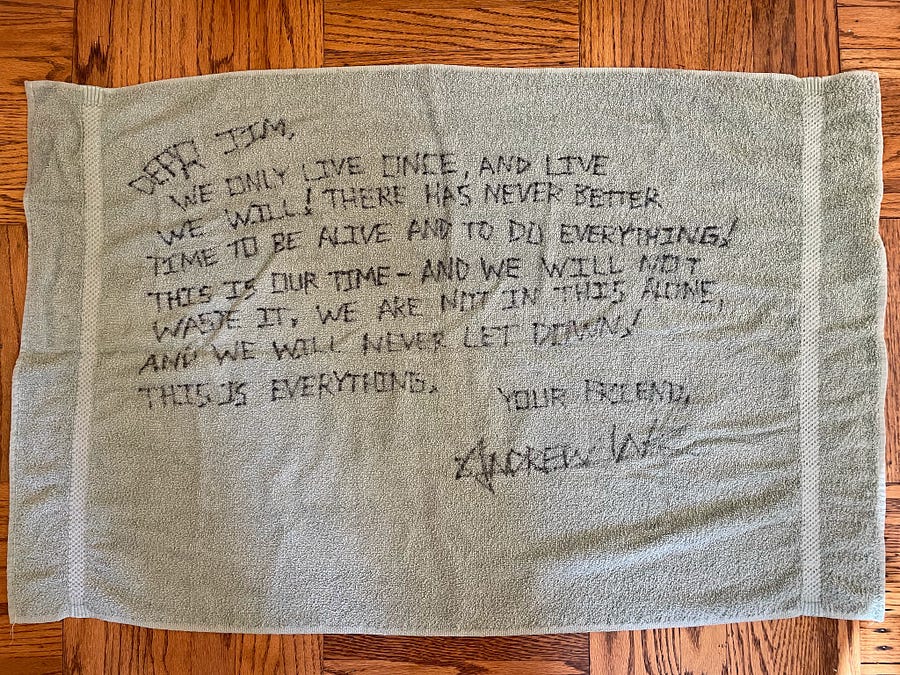 DEAR JIM,
WE ONLY LIVE ONCE, AND LIVE
WE WILL! THERE HAS NEVER BETTER
TIME TO BE ALIVE AND TO DO EVERYTHING!
THIS IS OUR TIME - AND WE WILL NOT
WASTE IT. WE ARE NOT IN THIS ALONE,
AND WE WILL NEVER LET DOWN!
THIS IS EVERYTHING.
YOUR FRIEND,
ANDREW W.K.